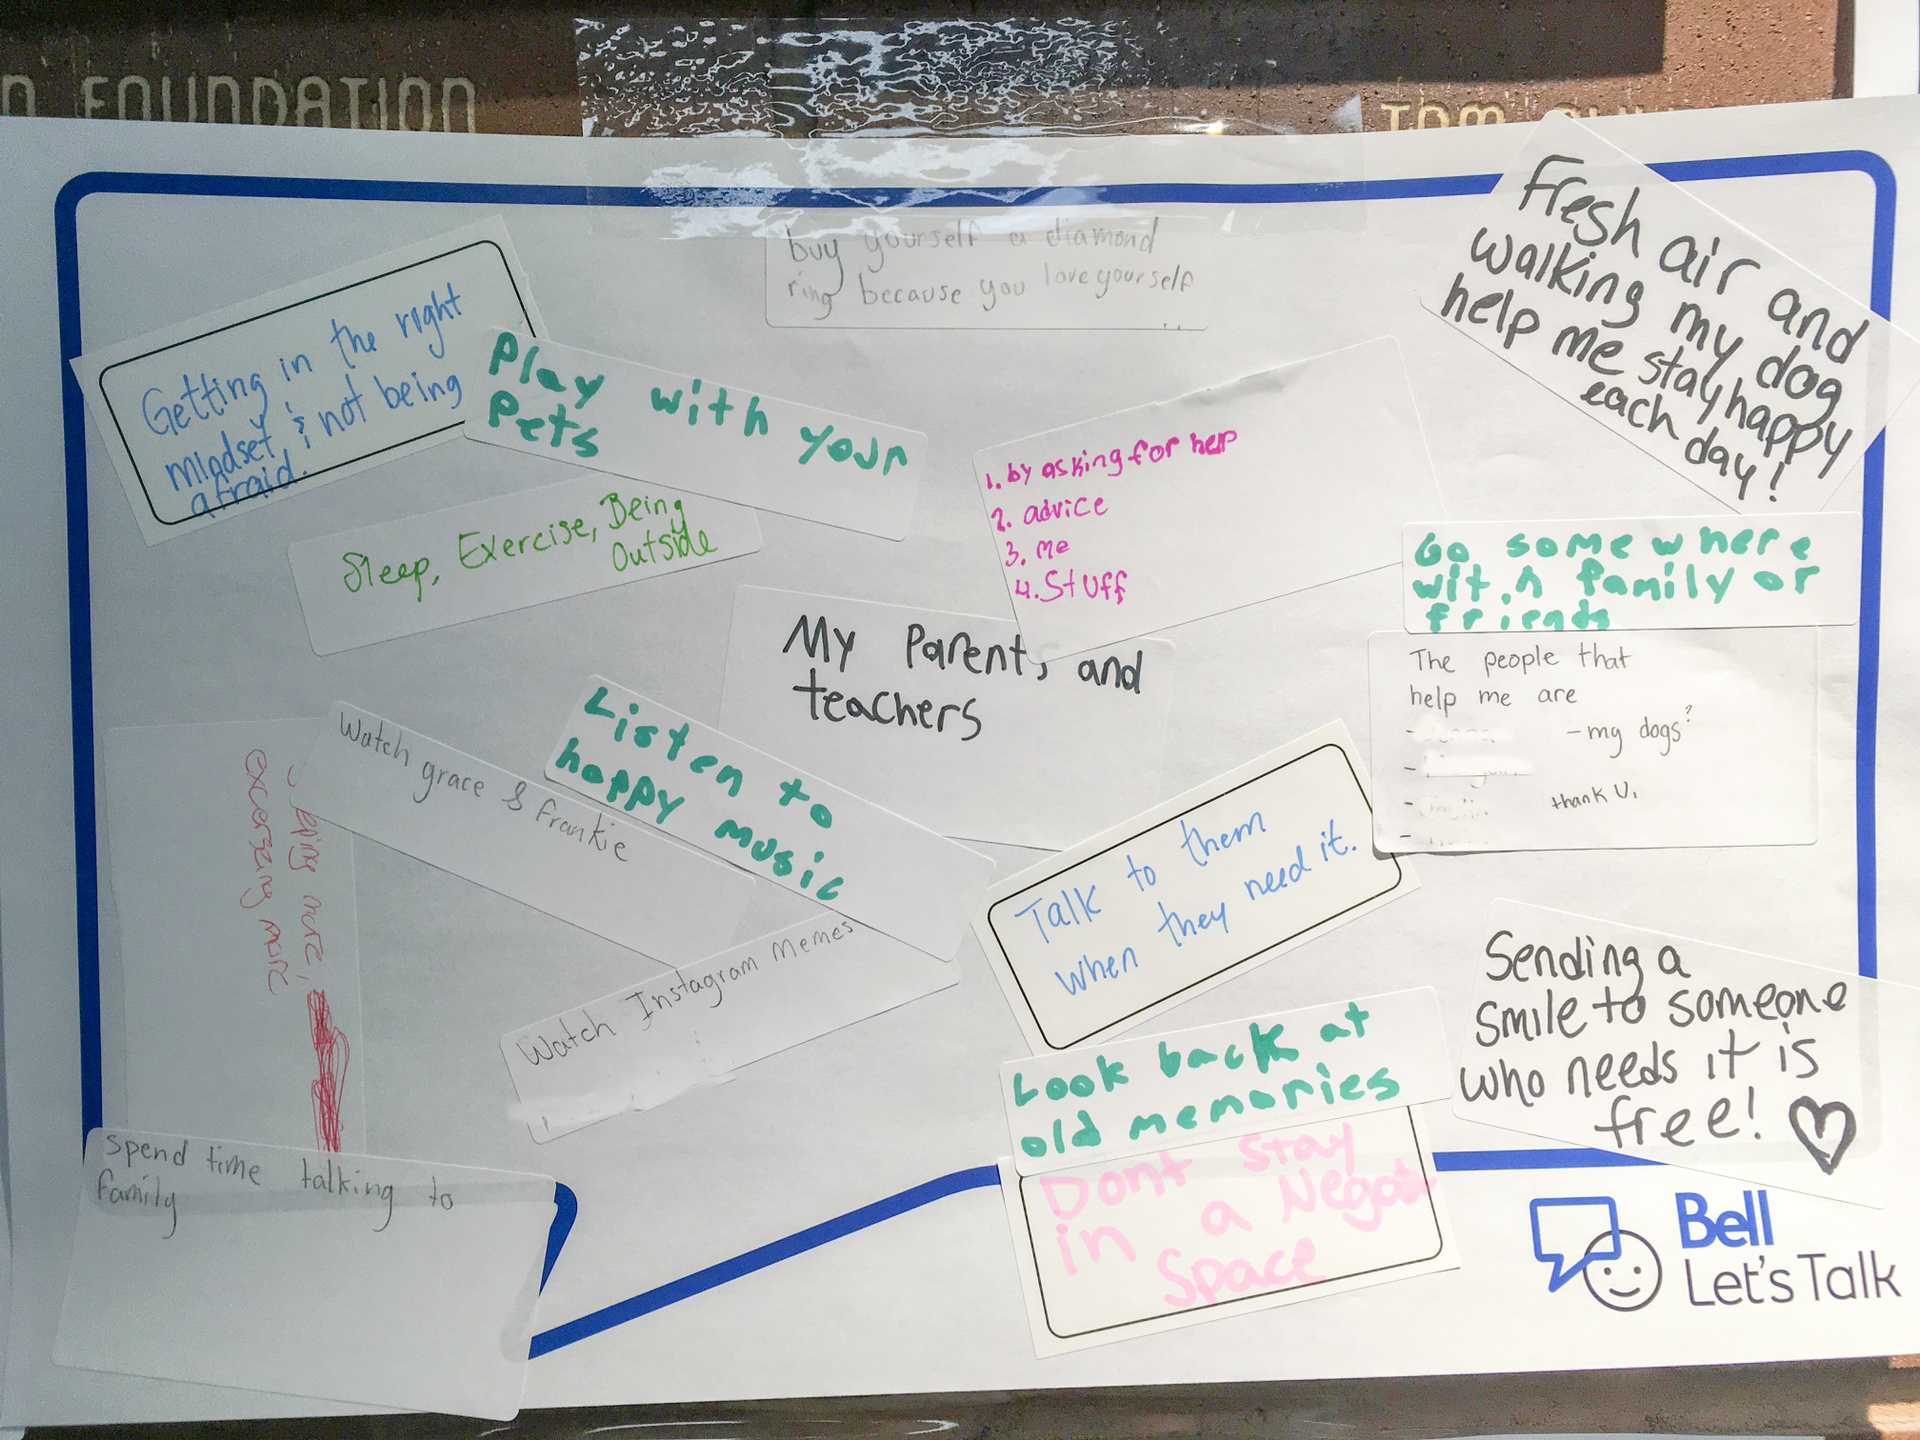 FOUNDATION
TOM
buy yourself a diamond
ring because you love yourself
Fresh air and
walking my dog
help me stay happy
each day!
Getting in the right
mindset & not being
afraid.
Play with your
Pets
Sleep, Exercise, Being
Outside
1. by asking for help
2. advice
3. me
4. Stuff
Go somewhere
with family or
friends
My Parents and
teachers
The people that
help me are
- my dogs?
thank U.
Listen to
happy music
Watch grace & frankie
more,
excersing more
Talk to them
when they need it.
Watch Instagram memes
Sending a
smile to someone
who needs it is
free!
Look back at
old memories
Dont stay
in a
Space
Spend time talking to
family
Bell
Let's Talk